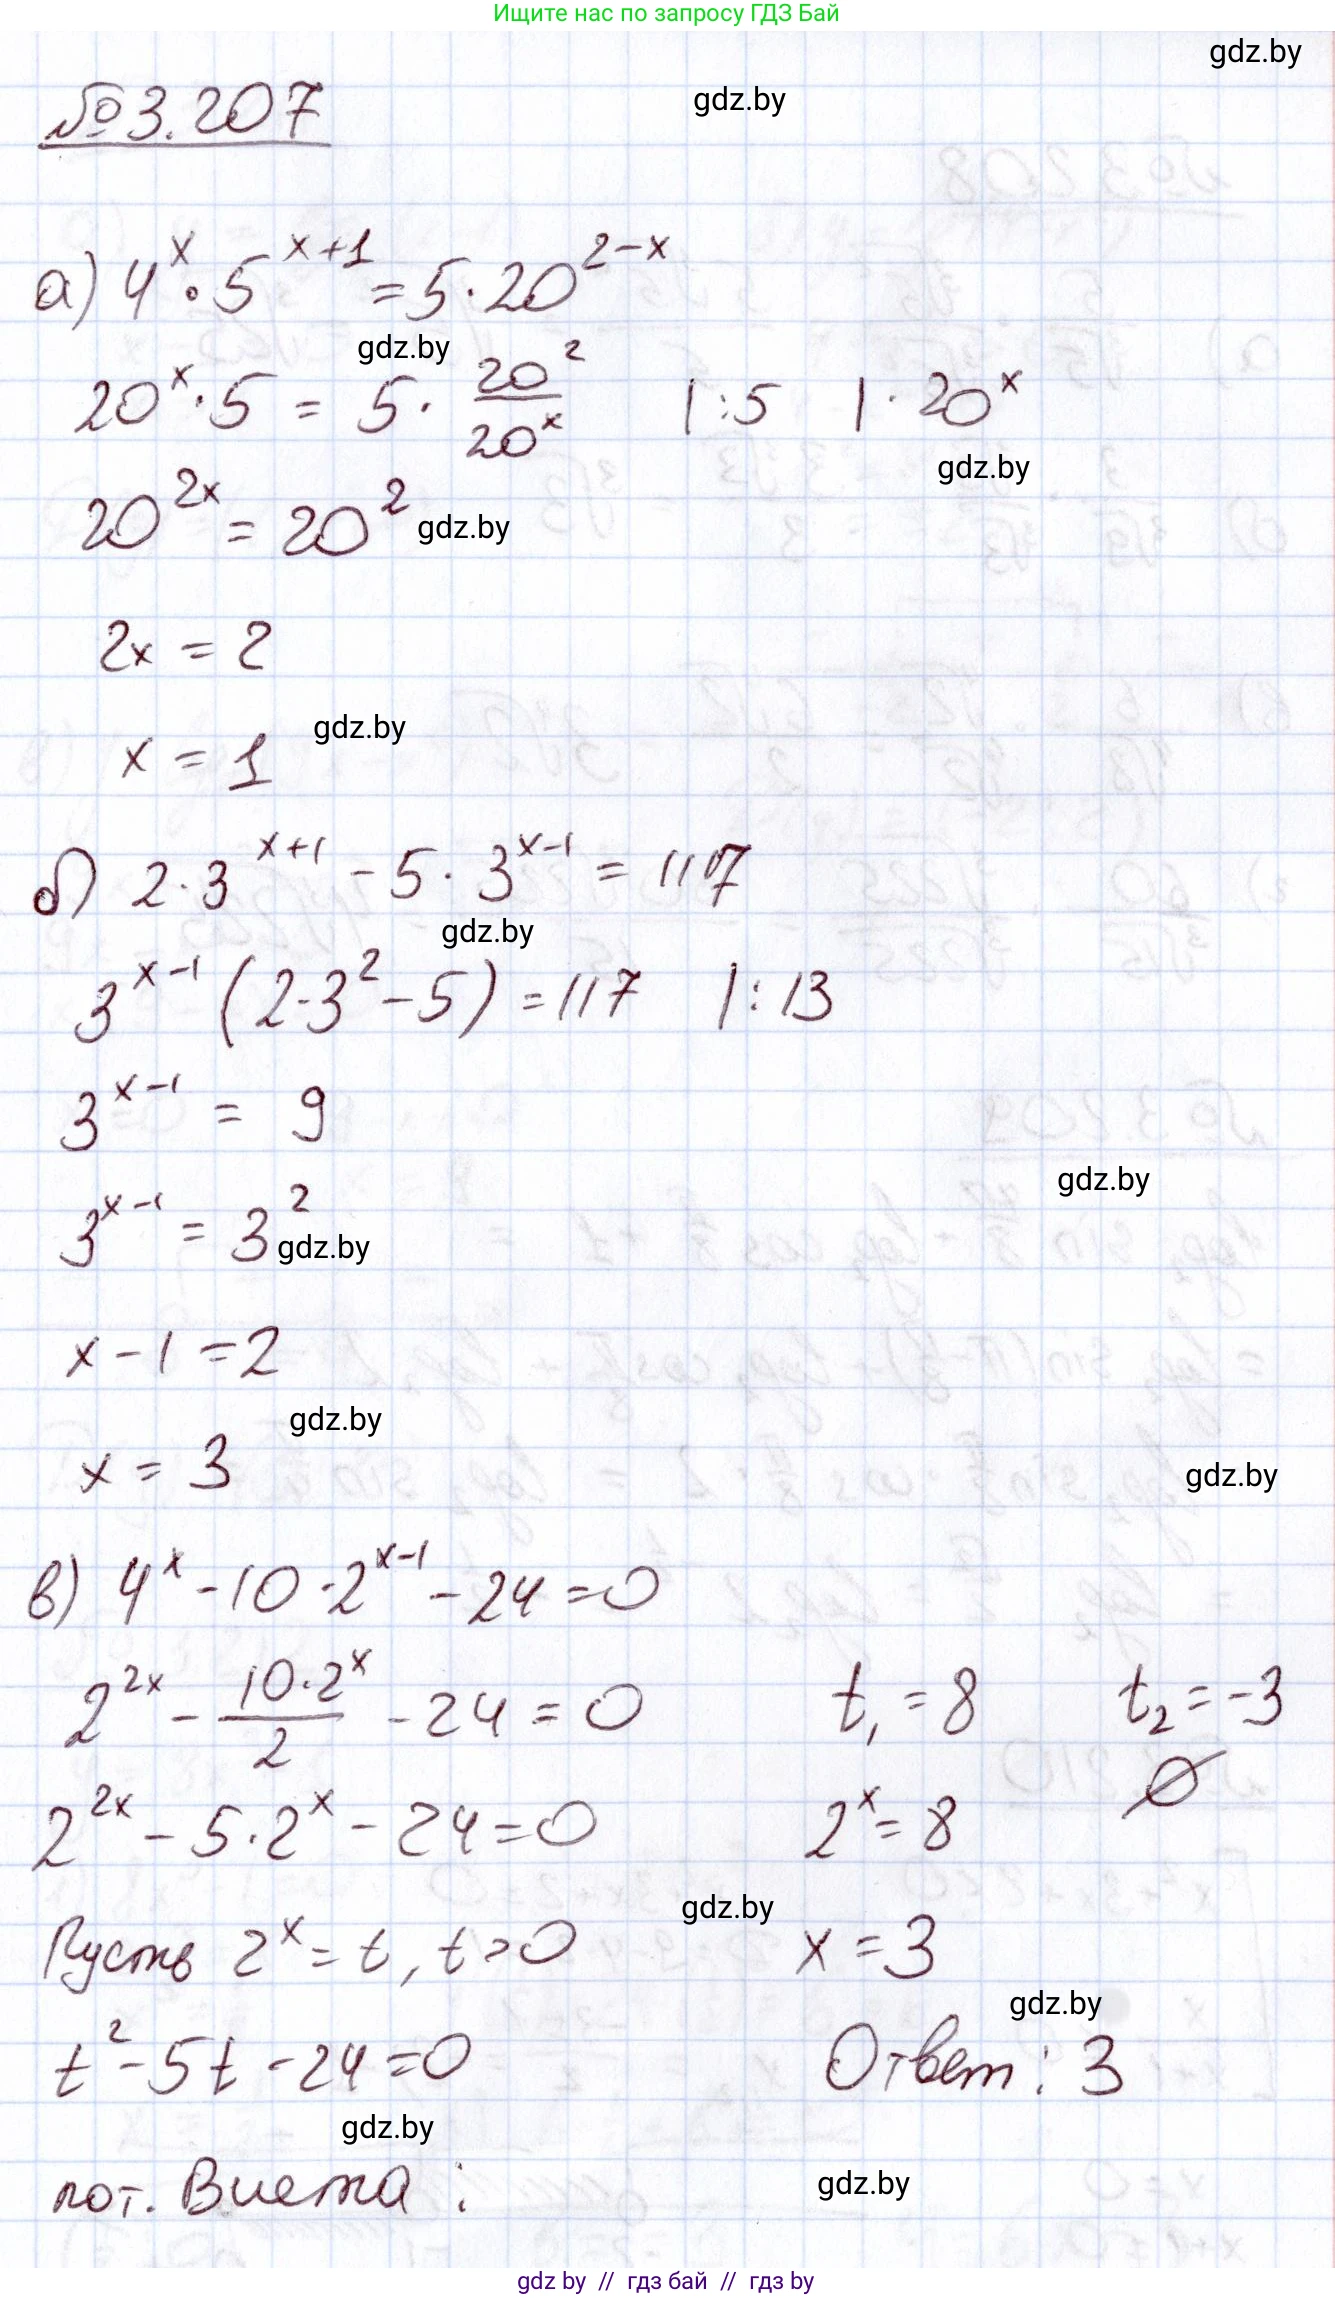 Ищите нас по запросу ГДЗ Бай
gdz.by
№ 3.207
gdz.by
а) 4^x · 5^(x+1) = 5 · 20^(2-x)
gdz.by
20^x · 5 = 5 · 20^2/20^x |:5 | · 20^x
gdz.by
20^(2x) = 20^2 gdz.by
2x = 2
gdz.by
x = 1
б) 2 · 3^(x+1) - 5 · 3^(x-1) = 117
gdz.by
3^(x-1) (2·3^2 - 5) = 117 |: 13
3^(x-1) = 9
gdz.by
3^(x-1) = 3^2 gdz.by
x - 1 = 2
gdz.by
x = 3
gdz.by
в) 4^x - 10 · 2^(x-1) - 24 = 0
2^(2x) - 10·2^x/2 - 24 = 0
2^(2x) - 5·2^x - 24 = 0
Пусть 2^x = t, t > 0
t^2 - 5t - 24 = 0
gdz.by
по т. Виета :
t₁ = 8 t₂ = -3
∅
2^x = 8
gdz.by
x = 3
gdz.by
Ответ : 3
gdz.by
gdz by // гдз бай // гдз by